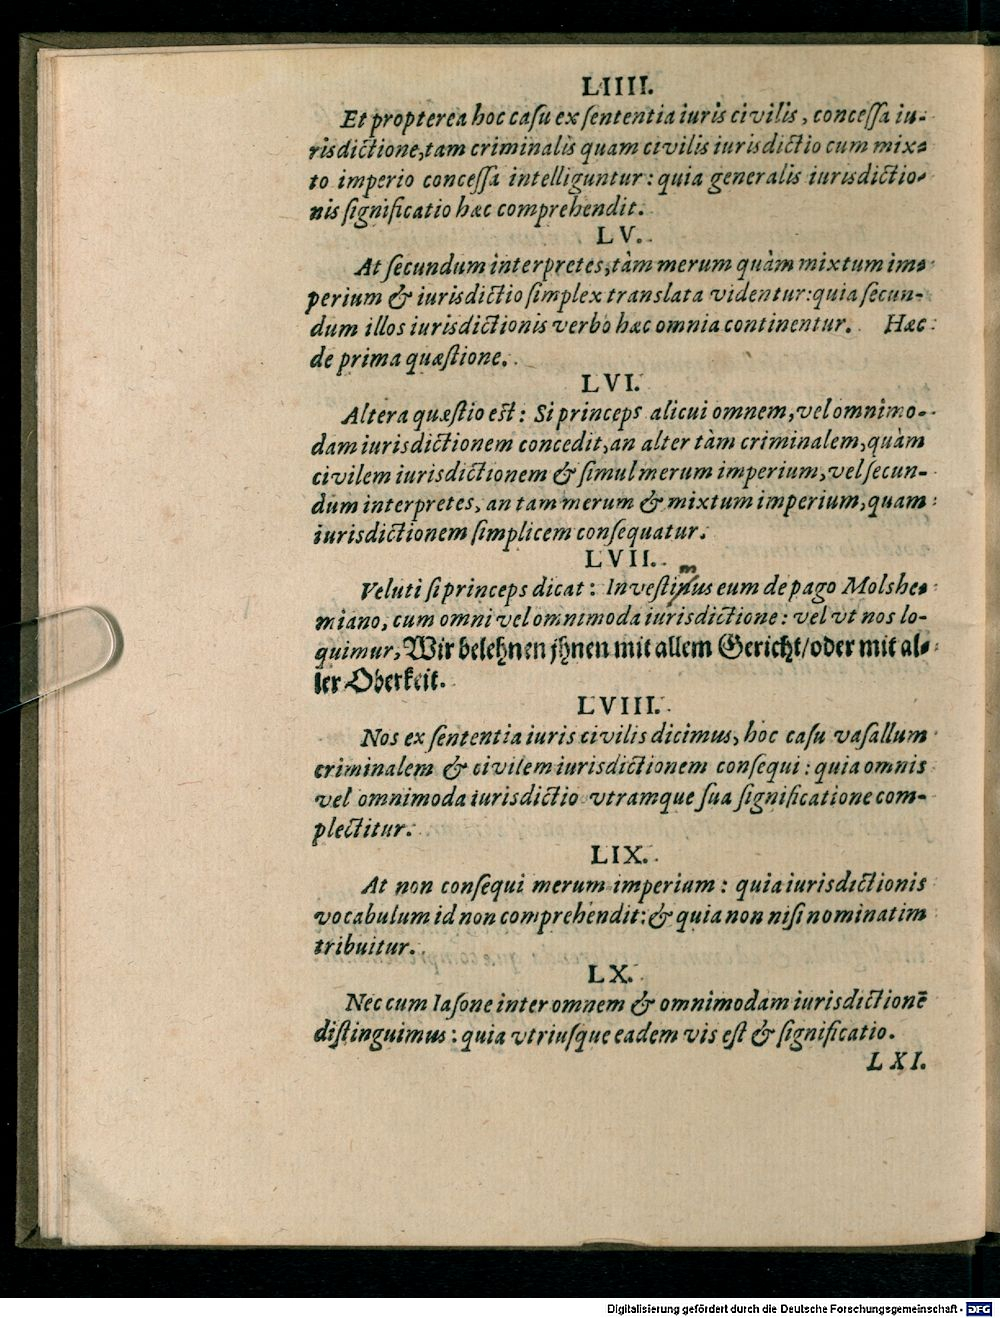 LIIII.
Et propterea hoc casu ex sententia iuris civilis, concessa iu-
risdictione, tam criminalis quam civilis iurisdictio cum mix-
to imperio concessa intelliguntur: quia generalis iurisdictio-
nis significatio hæc comprehendit.
LV.
At secundum interpretes, tàm merum quàm mixtum im-
perium & iurisdictio simplex translata videntur: quia secun-
dum illos iurisdictionis verbo hæc omnia continentur. Hæc
de prima quæstione.
LVI.
Altera quæstio est: Si princeps alicui omnem, vel omnimo-
dam iurisdictionem concedit, an alter tàm criminalem, quàm
civilem iurisdictionem & simul merum imperium, vel secun-
dum interpretes, an tam merum & mixtum imperium, quam
iurisdictionem simplicem consequatur.
LVII.
m
Veluti si princeps dicat: Investinus eum de pago Molshe-
miano, cum omni vel omnimoda iurisdictione: vel vt nos lo-
quimur, Wir belehnen jhnen mit allem Gericht/oder mit al-
ler Oberkeit.
LVIII.
Nos ex sententia iuris civilis dicimus, hoc casu vasallum
criminalem & civilem iurisdictionem consequi: quia omnis
vel omnimoda iurisdictio vtramque sua significatione com-
plectitur.
LIX.
At non consequi merum imperium: quia iurisdictionis
vocabulum id non comprehendit: & quia non nisi nominatim
tribuitur.
LX.
Nec cum Iasone inter omnem & omnimodam iurisdictionē
distinguimus: quia vtriusque eadem vis est & significatio.
LXI.
Digitalisierung gefördert durch die Deutsche Forschungsgemeinschaft - DFG